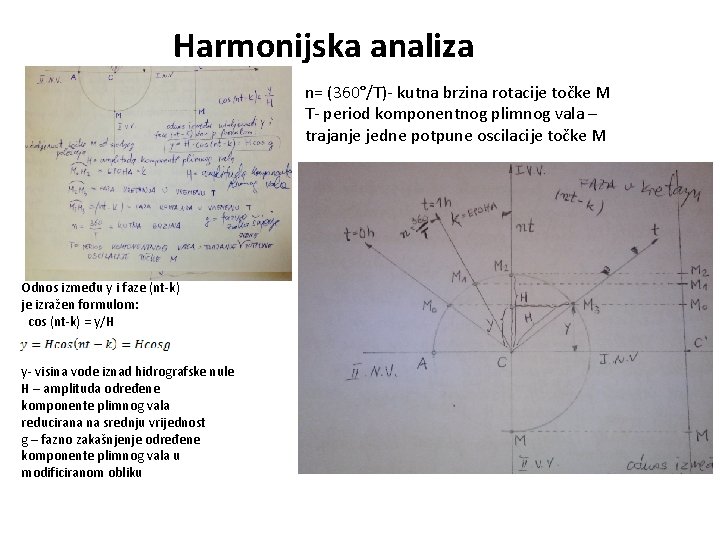 Harmonijska analiza
n= (360°/T)- kutna brzina rotacije točke M
T- period komponentnog plimnog vala –
trajanje jedne potpune oscilacije točke M
A C
II.N.V. I.N.V
cos(nt-k)= y/H
M
I V.V.
y = H·cos(nt-k) = Hcos g
H = amplituda komponente plimnog vala
M₀M₂ = EPOHA = k
= FAZA KRETANJA U VREMENU T
= (nt-k) = FAZA KRETANJA U VREMENU T
n = 360/T = KUTNA BRZINA
T = PERIOD KOMPONENTNOG VALA = TRAJANJE POTPUNE
OSCILACIJE TOČKE M
Odnos između y i faze (nt-k)
je izražen formulom:
cos (nt-k) = y/H
y = Hcos(nt − k) = Hcosg
y- visina vode iznad hidrografske nule
H – amplituda određene
komponente plimnog vala
reducirana na srednju vrijednost
g – fazno zakašnjenje određene
komponente plimnog vala u
modificiranom obliku
I V.V.
FAZA u kretanju
(nt-k)
t=1h
k=EPOHA
n=360/T
nt
t
t=0h
M₂ M₂
M₁ M₁
M₀ H M₃ M₀
y H y
A C I.N.V C'
II.N.V.
M M
II V.V.
odnos